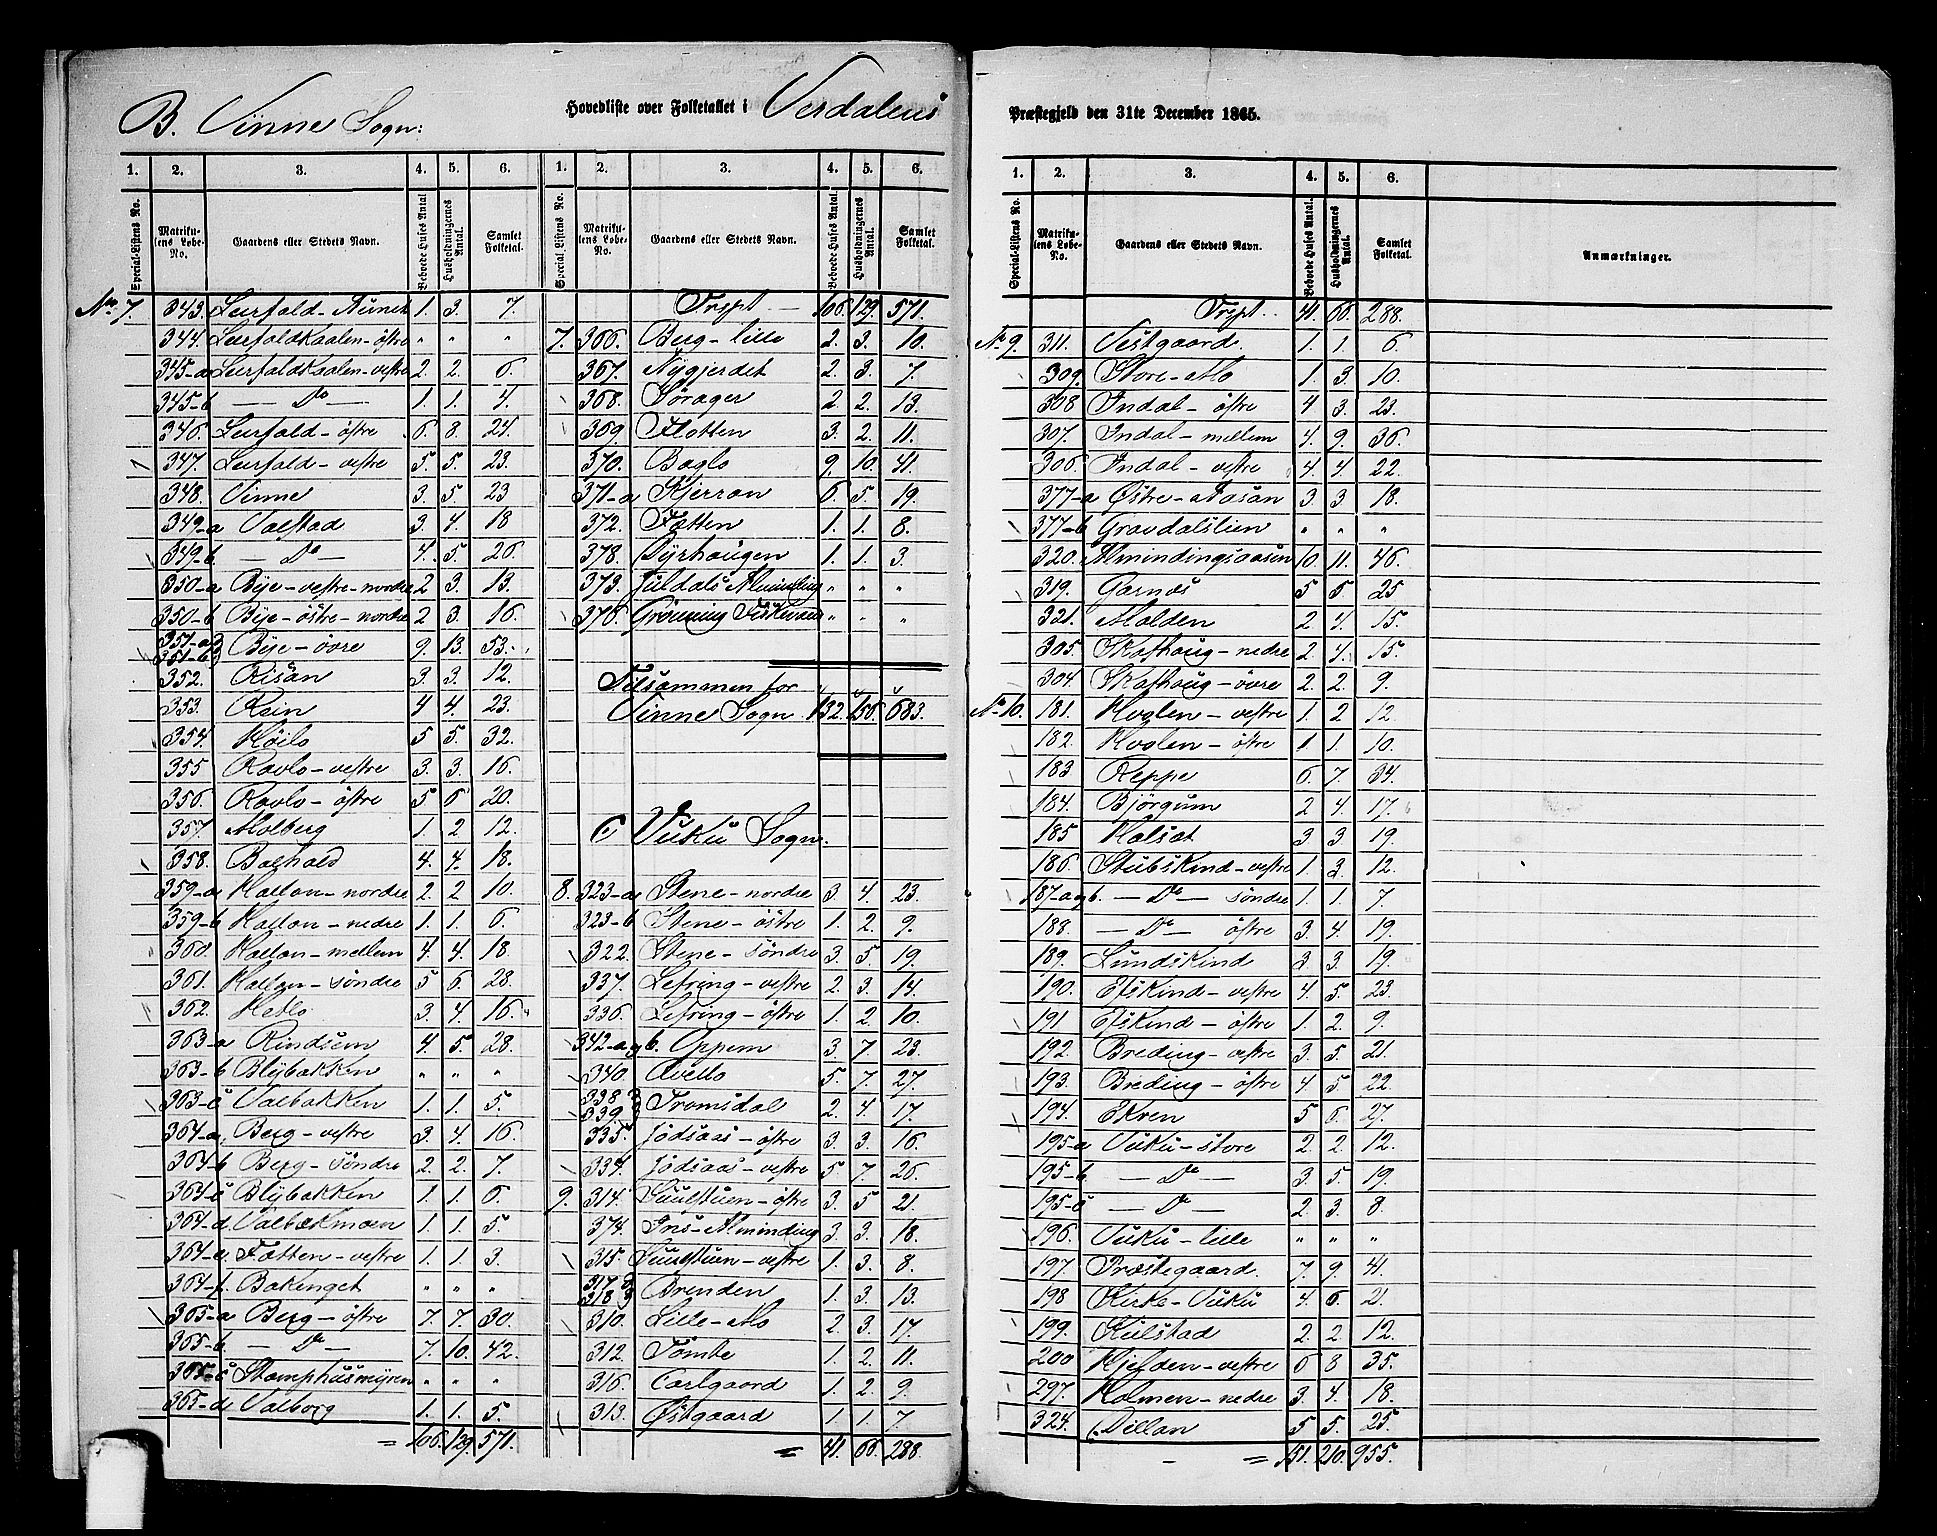 B. Vinne Sogn:
Hovedliste over Folketallet i Verdalens
Præstegjeld den 31te December 1865.
1. 2. 3. 4. 5. 6. 1. 2. 3. 4. 5. 6.
Special-Listens No. Matrikulens Løbe-No. Gaardens eller Stedets Navn. Beboede Huses Antal Husholdningernes Antal. Samlet Folketal. Special-Listens No. Matrikulens Løbe-No. Gaardens eller Stedets Navn. Beboede Huses Antal Husholdningernes Antal. Samlet Folketal.
No. 7. 343. Leirfald- 1. 3. 7.
344. Leirfaldkaalen-östre " " "
345-a Leirfaldkaalen-vestre 2. 2. 6.
345-b — Do — 1. 1. 4.
346. Leirfald-östre 6. 8. 24.
347. Leirfald-vestre 5. 5. 23.
348. Vinne 3. 5. 23
349-a Valstad 3. 4. 18
349-b — Do — 4. 5. 26.
350-a Bye-vestre-nordre 2 3. 13.
350-b Bye-östre-nordre 2 3. 16.
351-a
351-b Bye-övre 9. 13. 53.
352. Risan 3. 3. 12.
353. Rein 4 4. 23.
354. Köilo 5 5. 32.
355 Ravlo-vestre 3. 3. 16.
356. Ravlo-östre 5 6 20.
357. Molberg 1. 2 12.
358. Baghald 4. 4. 18.
359-a Hallan-nordre 2 2 10.
359-b Hallan-nedre 1. 1. 6.
360. Hallan-mellem 4. 4. 18.
361. Hallan-söndre 5 6. 28.
362. Hetlo 3. 4. 16.
363-a Rindsem 4. 5. 28.
363-b Blybakken " " "
363-c Valbakken 1. 1. 5.
364-a Berg-vestre 3. 4. 16.
364-b Berg-söndre 2. 2. 7.
364-c Blybakken 1. 1. 6.
364-d. Valbakmoen 1. 1. 5.
364-e. Fætten-vestre 1. 1. 3.
364-f. Bakenget " " "
365-a Berg-östre 7. 7. 30.
365-b — Do — 7. 10. 42.
365-c Stamphusmyren " " "
365-d. Valborg 1. 1. 5.
= 106. 129. 571.
Trspt. — 106. 129. 571.
7. 366. Berg-lille 2. 3. 10.
367. Nygjerdet 2 3. 7.
368. Sörager 2. 2. 13.
369. Flotten 3. 2. 11.
370. Baglo 9. 10. 41.
371-a Kjerran 6. 5. 19.
372. Fætten 1. 1. 8.
378. Dyrhaugen 1. 1. 3.
373. Juldals Alminding " " "
376. Grönning " " "
Tilsammen for
Vinne Sogn. 132. 156. 683.
C Vuku Sogn.
8. 323-a Stene-nordre 3. 4. 23.
323-b Stene-östre 1. 2 9.
322. Stene-söndre 3. 5. 19.
337. Lefring-vestre 2. 3. 14.
336. Lefring-östre 1. 2. 10.
342-a og b. Oppem 3. 7. 23.
340. Ovello 5. 7. 27.
338
339 Tromsdal 2. 4. 17.
335. Jödsaas-östre 3. 3. 16.
334. Jödsaas-vestre 5. 7. 26.
9. 314. Suulstuen-östre 3. 5 21.
374. Ins-Alminding 3. 3. 18.
315. Suulstuen-vestre 1. 3. 8.
317
318 Brenden 1. 3. 13.
310. Lille-Mo 2. 3. 17.
312. Tömte 1. 2. 11.
316. Carlgaard 1. 2. 9.
313. Østgaard 1. 1. 7
= 41. 66. 288.
1. 2. 3. 4. 5. 6.
Special-Listens No. Matrikulens Løbe-No. Gaardens eller Stedets Navn. Beboede Huses Antal. Husholdningernes Antal. Samlet Folketal. Anmærkninger.
Trspt. 41. 66. 288.
No. 9. 311. Vestgaard. 1. 1. 6.
309. Store-Mo 1. 3. 10.
308 Indal-östre 4 3. 23.
307. Indal-mellem 4. 9. 36.
306. Indal-vestre 4. 4. 22.
377-a Østre-Aasan 3 3. 18.
377-b Gravdalslien " " "
320. Almindingsaasen 10. 11. 46.
319. Garnæs 5 6. 25
321. Molden 2 4. 15.
305. Skafhaug-nedre 2. 4. 15.
304. Skafhaug-övre 2. 2. 9.
No. 10. 181. Kvelen-vestre 1. 2 12.
182. Kvelen-östre 1. 1. 10.
183 Reppe 6. 7. 34.
184. Björgum 2 4. 17.
185 Halsat 3 3. 19.
186. Stubskind-vestre 1. 3. 12.
187-a og b. — Do — söndre 1. 1. 7.
188. — Do — östre 3. 4. 19.
189. Lundskind 3. 3. 19.
190. Efskind-vestre 4. 5. 23.
191 Efskind-östre 1. 2. 9.
192. Breding-vestre 3. 5. 21.
193. Breding-östre 4. 5 22.
194. Ekren 5 6. 27.
195-a Vuku-store 2. 2. 12.
195-b — Do — 3. 5. 19.
195-c — Do — 2. 3. 8.
196. Vuku-lille " " "
197. Præstegaard. 7. 9. 41.
198 Kirke-Vuku 4. 6. 21.
199. Kulstad 2. 2. 12.
200 Kjelden-vestre 6 8 35.
297. Holmen-nedre 3. 4. 18.
324. Dillan 5 5. 25.
= 151. 210. 955.